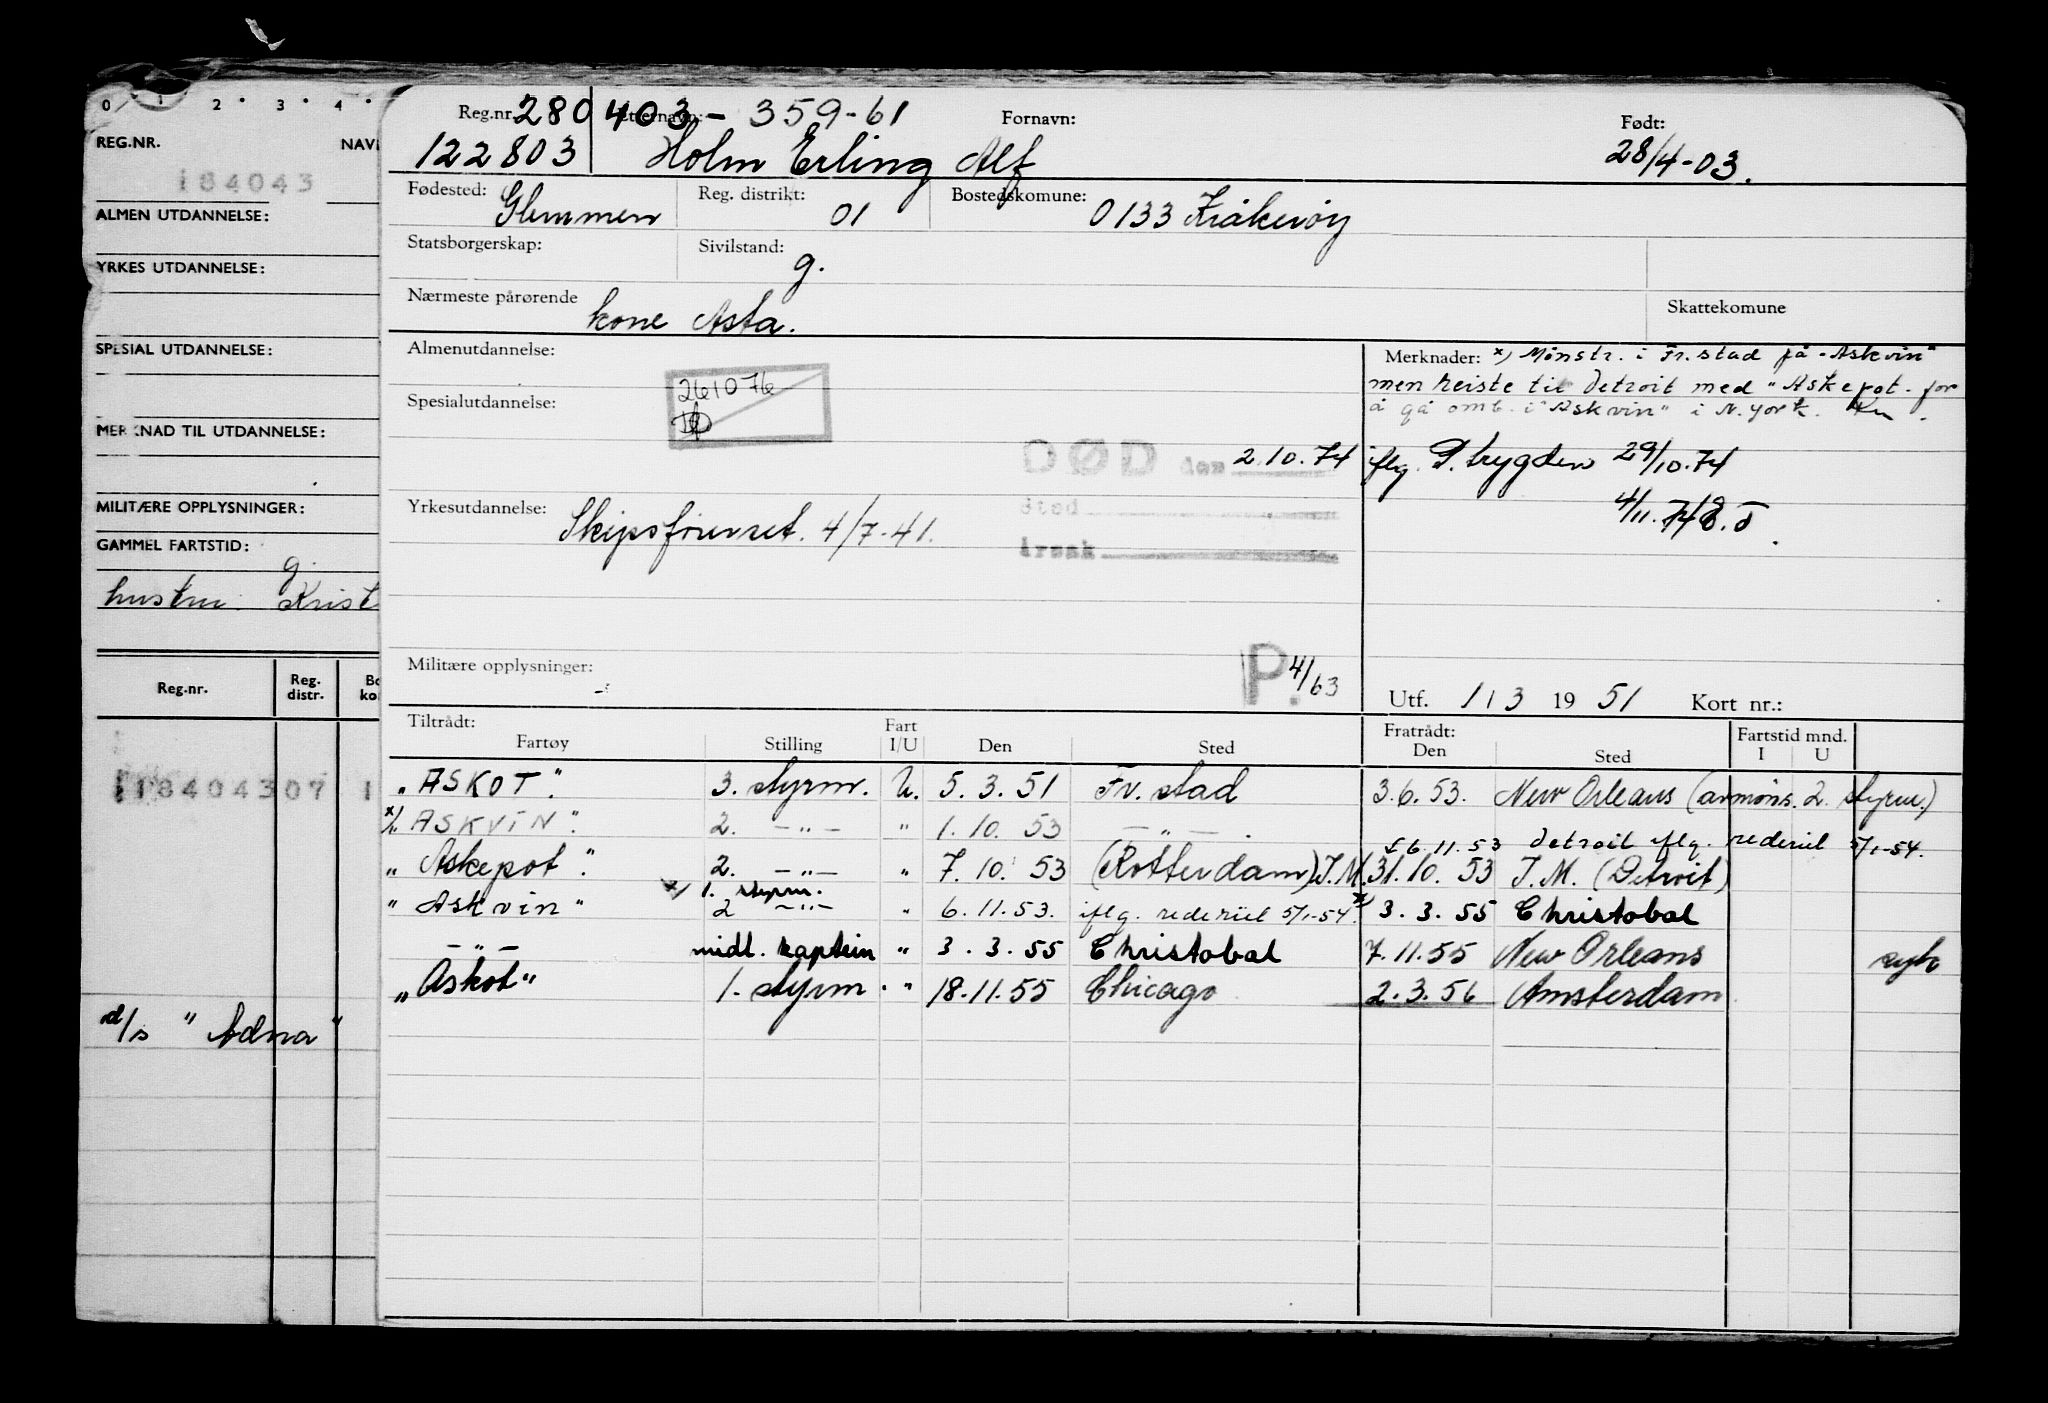 0 1 2 · 3 · 4 ·
REG.NR. NAV
184043
ALMEN UTDANNELSE:
YRKES UTDANNELSE:
SPESIAL UTDANNELSE:
MERKNAD TIL UTDANNELSE:
MILITÆRE OPPLYSNINGER:
GAMMEL FARTSTID:
g.
hustru Krist
Reg.nr. Reg. distr. Bo ko
118404307 1
d/s " Adna "
Reg.nr. 280 403 - 359-61 Fornavn: Født:
122803 Holm Erling Alf 28/4-03.
Fødested: Glemmen Reg. distrikt: 01 Bostedskomune: 0133 Kråkerøy
Statsborgerskap: Sivilstand: g.
Nærmeste pårørende kone Asta. Skattekomune
Almenutdannelse: Merknader: x) Mønstr. i Fr.stad på "Askvin"
261076 men reiste til Detroit med "Askepot" for
Spesialutdannelse: å gå omb. i "Askvin" i N.york.
DØD den 2.10.74 iflg. P. trygden 29/10.74
Sted
Yrkesutdannelse: Skipsførerret. 4/7-41. 4/11.74
Årsak
Militære opplysninger: P. 4/63 Utf. 1 / 3 19 51 Kort nr.:
Tiltrådt: Fart Fratrådt: Fartstid mnd.
Fartøy Stilling I/U Den Sted Den Sted I U
" ASKOT " 3. styrm. U. 5.3.51 Fr.stad 3.6.53. New Orleans (avmøns. 2. styrm.)
x/ " ASKVIN " 2. -"- " 1.10.53 -"- . 6.11.53 Detroit iflg. rederiet 5/1-54.
" Askepot " 2. -"- " 7.10.53 (Rotterdam) I.M. 31.10.53 I.M. (Detroit)
x) 1. styrm.
" Askvin " 2 -"- " 6.11.53. iflg. rederiet 5/1-54. x) 3.3.55 Christobal
-"- midl. kaptein " 3.3.55 Christobal 7.11.55 New Orleans
" Askot " 1. styrm. " 18.11.55 Chicago 2.3.56 Amsterdam